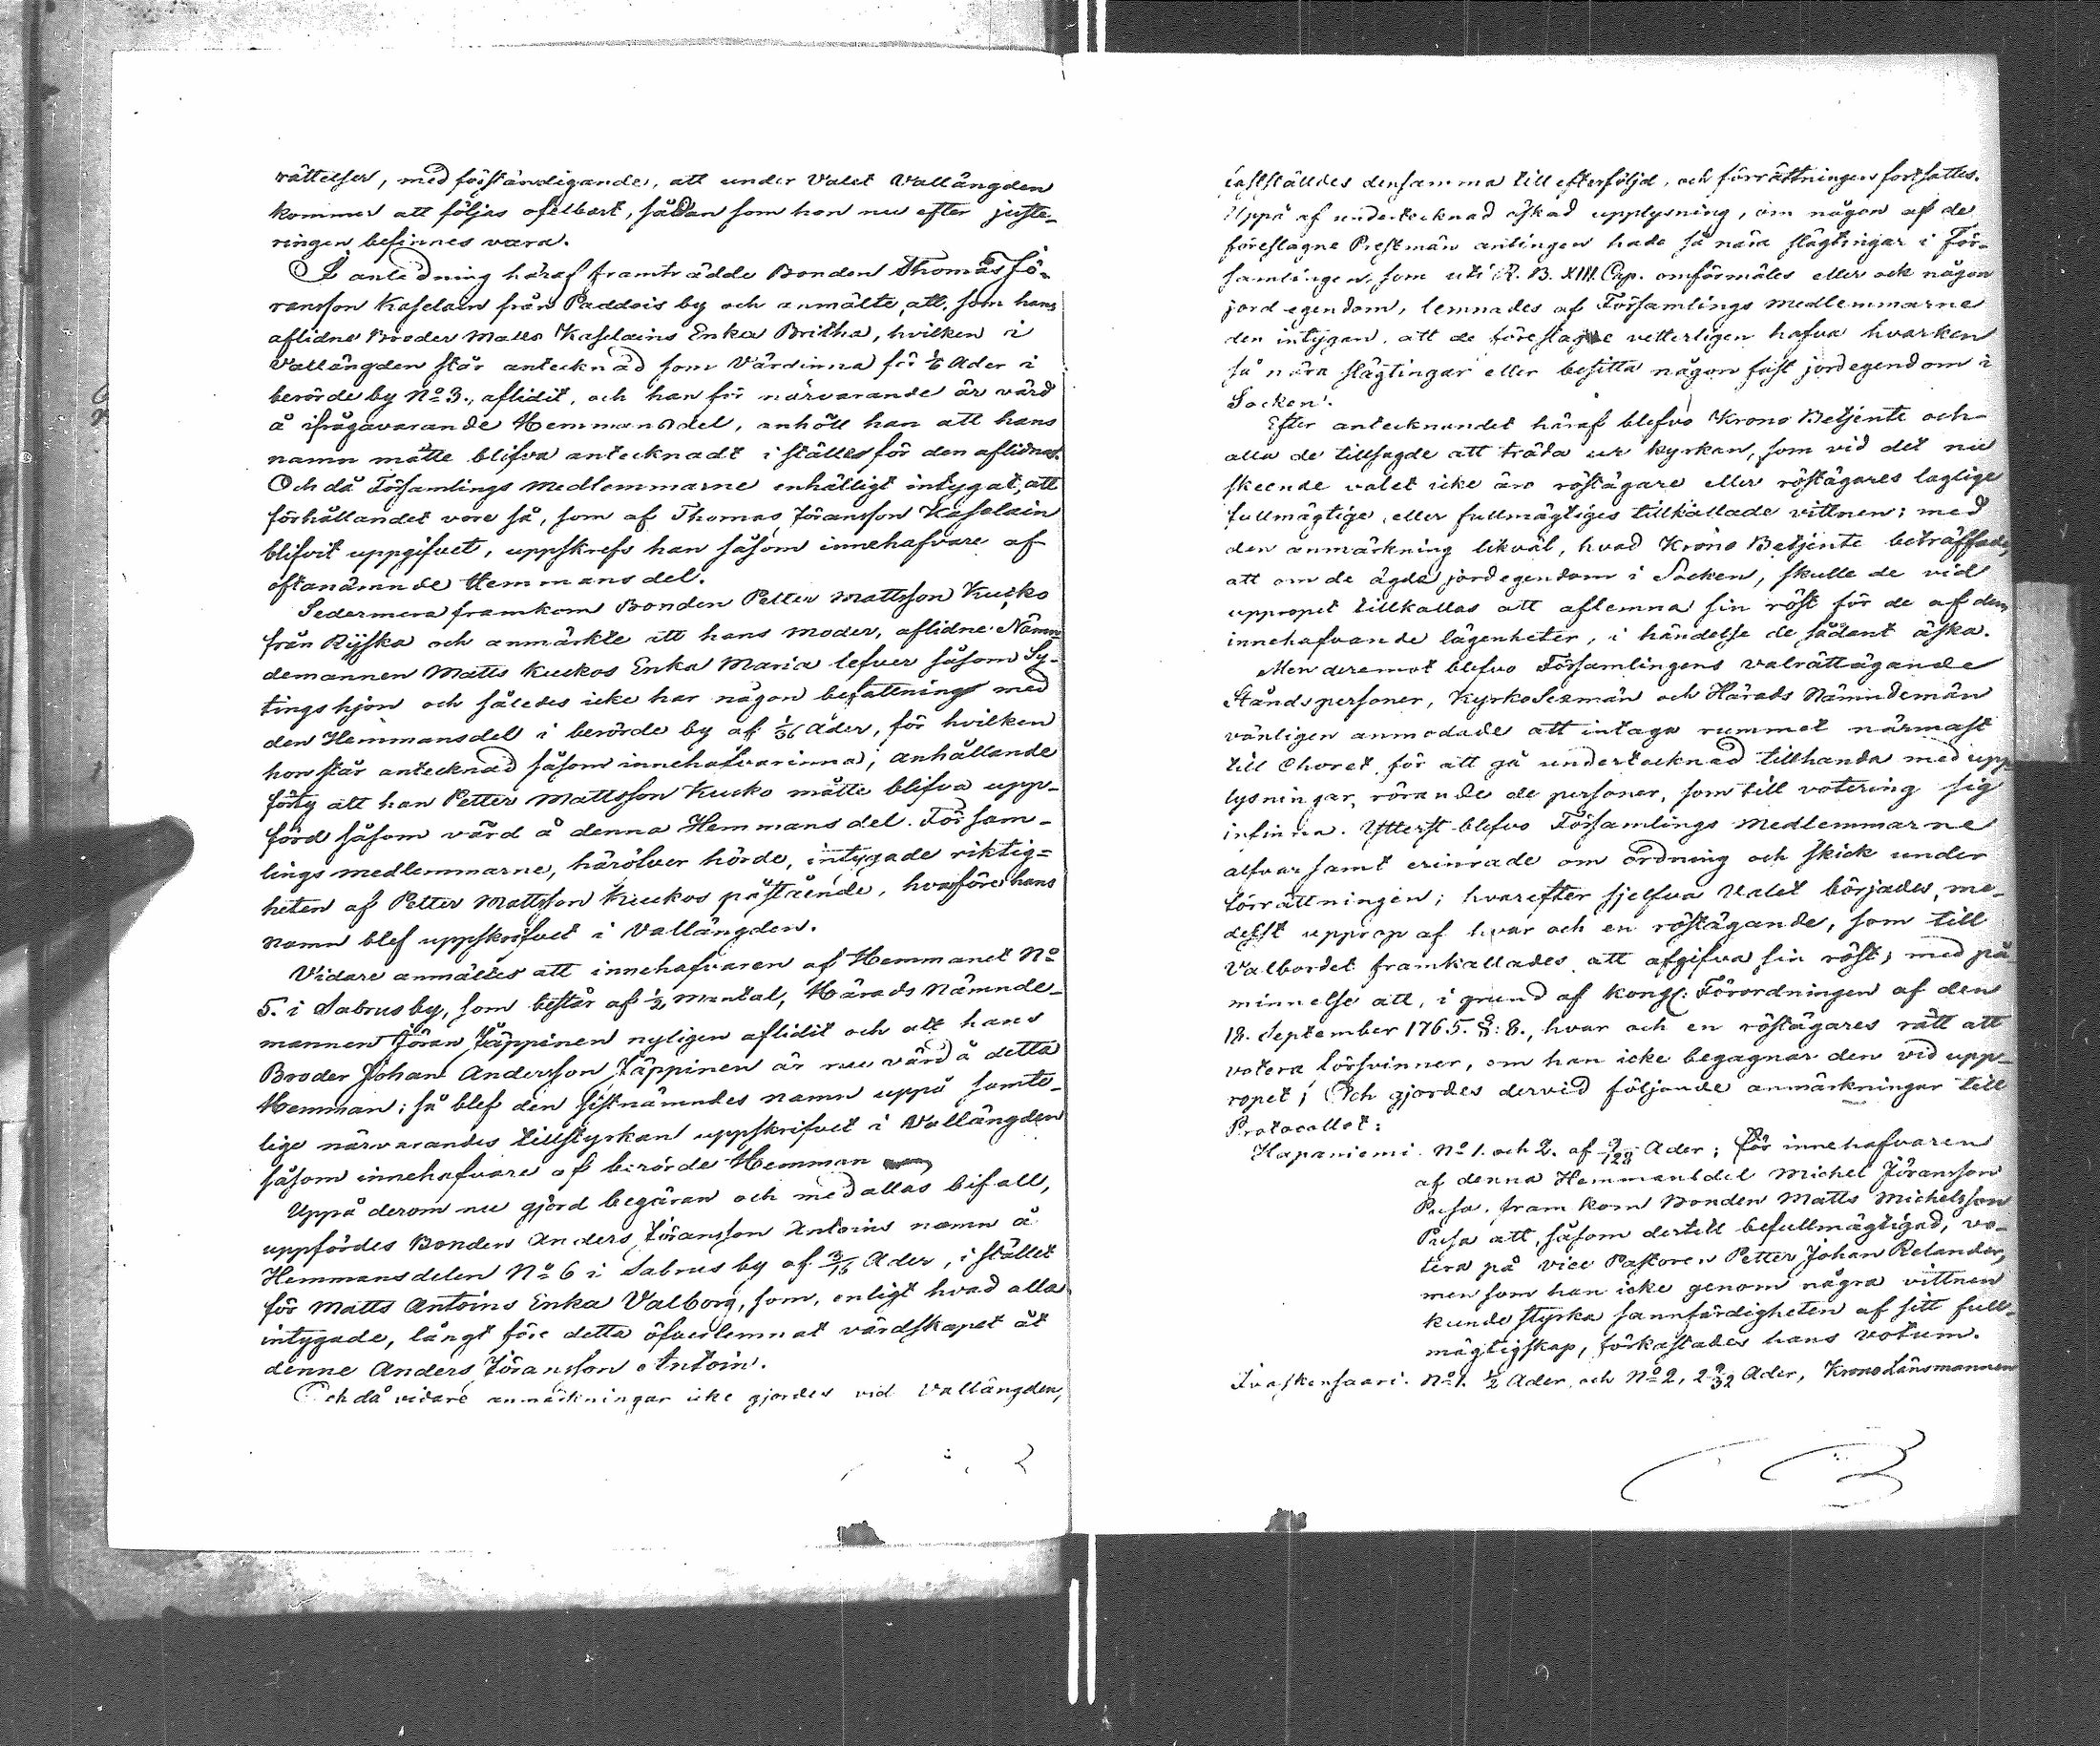 rättelser, med förständigande, att under Valet Vallängden
kommer att följas ofelbart, sådan som hon nu efter juste-
ringen befinnes vara.
I anledning häraf framträdde Bonden Thomas Jö-
ransson Kaselain från Paddois by och anmälte, att, som hans
aflidne Broder Matts Kaselains Enka Britha, hvilken i
Vallängden står antecknad som Värdinna för 1/6 Ader i
berörde by No 3., aflidit, och han för närvarande är värd
å ifrågavarande Hemmansdel, anhöll han att hans
namn måtte blifva antecknadt i stället för den aflidnas.
Och då Församlings medlemmarne enhälligt intygat, att
förhållandet vore så, som af Thomas Jöransson Kaselain
blifvit uppgifvet, uppskrefs han såsom innehafvare af
oftanämnde Hemmansdel.
Sedermera framkom Bonden Petter Mattsson Kucko
från Ryska och anmärkte att hans moder, aflidne Nämn-
demannen Matts Kuckos Enka Maria lefver såsom Sy-
tingshjon och således icke har någon befattning med
den Hemmansdel i berörde by af 1/36 Ader, för hvilken
hon står antecknad såsom innehafvarinna; anhållande
förty att han Petter Mattsson Kucko måtte blifva upp-
förd såsom värd å denna Hemmansdel. Försam-
lings medlemmarne, häröfver hörde, intygade riktig-
heten af Petter Mattsson Kuckos påstående, hvarföre hans
namn blef uppskrifvet i Vallängden.
Vidare anmältes att innehafvaren af Hemmanet No
5. i Sabrus by, som består af 1/2 mantal, Härads Nämnde-
mannen Jöran Jäppinen nyligen aflidit och att hans
Broder Johan Andersson Jäppinen är nu värd å detta
Hemman; så blef den sistnämndes namn uppå samte-
lige närvarandes tillstyrkan uppskrifvet i Vallängden
såsom innehafvare af berörde Hemman
Uppå derom nu gjord begäran och med allas bifall,
uppfördes Bonden Anders Jöransson Antoins namn å
Hemmansdelen No 6 i Sabrus by af 3/16 Ader, i stället
för Matts Antoins Enka Valborg, som, enligt hvad alla
intygade, långt före detta öfverlemnat värdskapet åt
denne Anders Jöransson Antoin.
Och då vidare anmärkningar icke gjordes vid Vallängden,
fastställdes densamma till efterföljd, och förrättningen fortsattes.
Uppå af undertecknad äskad upplysning, om någon af de
föreslagne Prestmän antingen hade så nära slägtingar i För-
samlingen, som uti R. B. XIII. Cap. omförmäles eller ock någon
jord egendom, lemnades af Församlings medlemmarne
den intygan, att de föreslagne vetterligen hafva hvarken
så nära slägtingar eller besitta någon fast jordegendom i
Socken.
Efter antecknandet häraf blefvo Krono Betjente och
alla de tillsagde att träda ur kyrkan, som vid det nu
skeende valet icke äro röstägare eller röstägares laglige
fullmägtige, eller fullmägtiges tillkallade vittnen; med
den anmärkning likväl, hvad Krono Betjente beträffade,
att om de ägde jordegendom i Socken, skulle de vid
uppropet tillkallas att aflemna sin röst för de af dem
innehafvande lägenheter, i händelse de sådant äska.
Men deremot blefvo Församlingens valrättägande
Ståndspersoner, KyrkoSexmän och Härads Nämndemän
vänligen anmodade att intaga rummet närmast
till Choret för att gå undertecknad tillhanda med upp-
lysningar, rörande de personer, som till votering sig
infinna. Ytterst blefvo Församlings Medlemmarne
alfvarsamt erinrade om ordning och skick under
förrättningen; hvarefter sjelfva Valet börjades, me-
delst upprop af hvar och en röstägande, som till
Valbordet framkallades att afgifva sin röst, med på-
minnelse att, i grund af Kongl: Förordningen af den
18. September 1765. §: 8., hvar och en röstägares rätt att
votera försvinner, om han icke begagnar den vid upp-
ropet; Och gjordes dervid följande anmärkningar till
Protocollet:
Hapaniemi. No 1. och 2. af 9/128 Ader; För innehafvaren
af denna Hemmansdel Michel Jöransson
Pusa, framkom Bonden Matts Michelsson
Pusa att, såsom dertill befullmägtigad, vo-
tera på vice Pastoren Petter Johan Relander,
men som han icke genom några vittnen
kunde styrka sannfärdigheten af sitt full-
mägtigskap, förkastades hans votum.
Ivaskensaari. No 1. 1/2 Ader, och No 2, 2 9/32 Ader, Krono Länsmannen